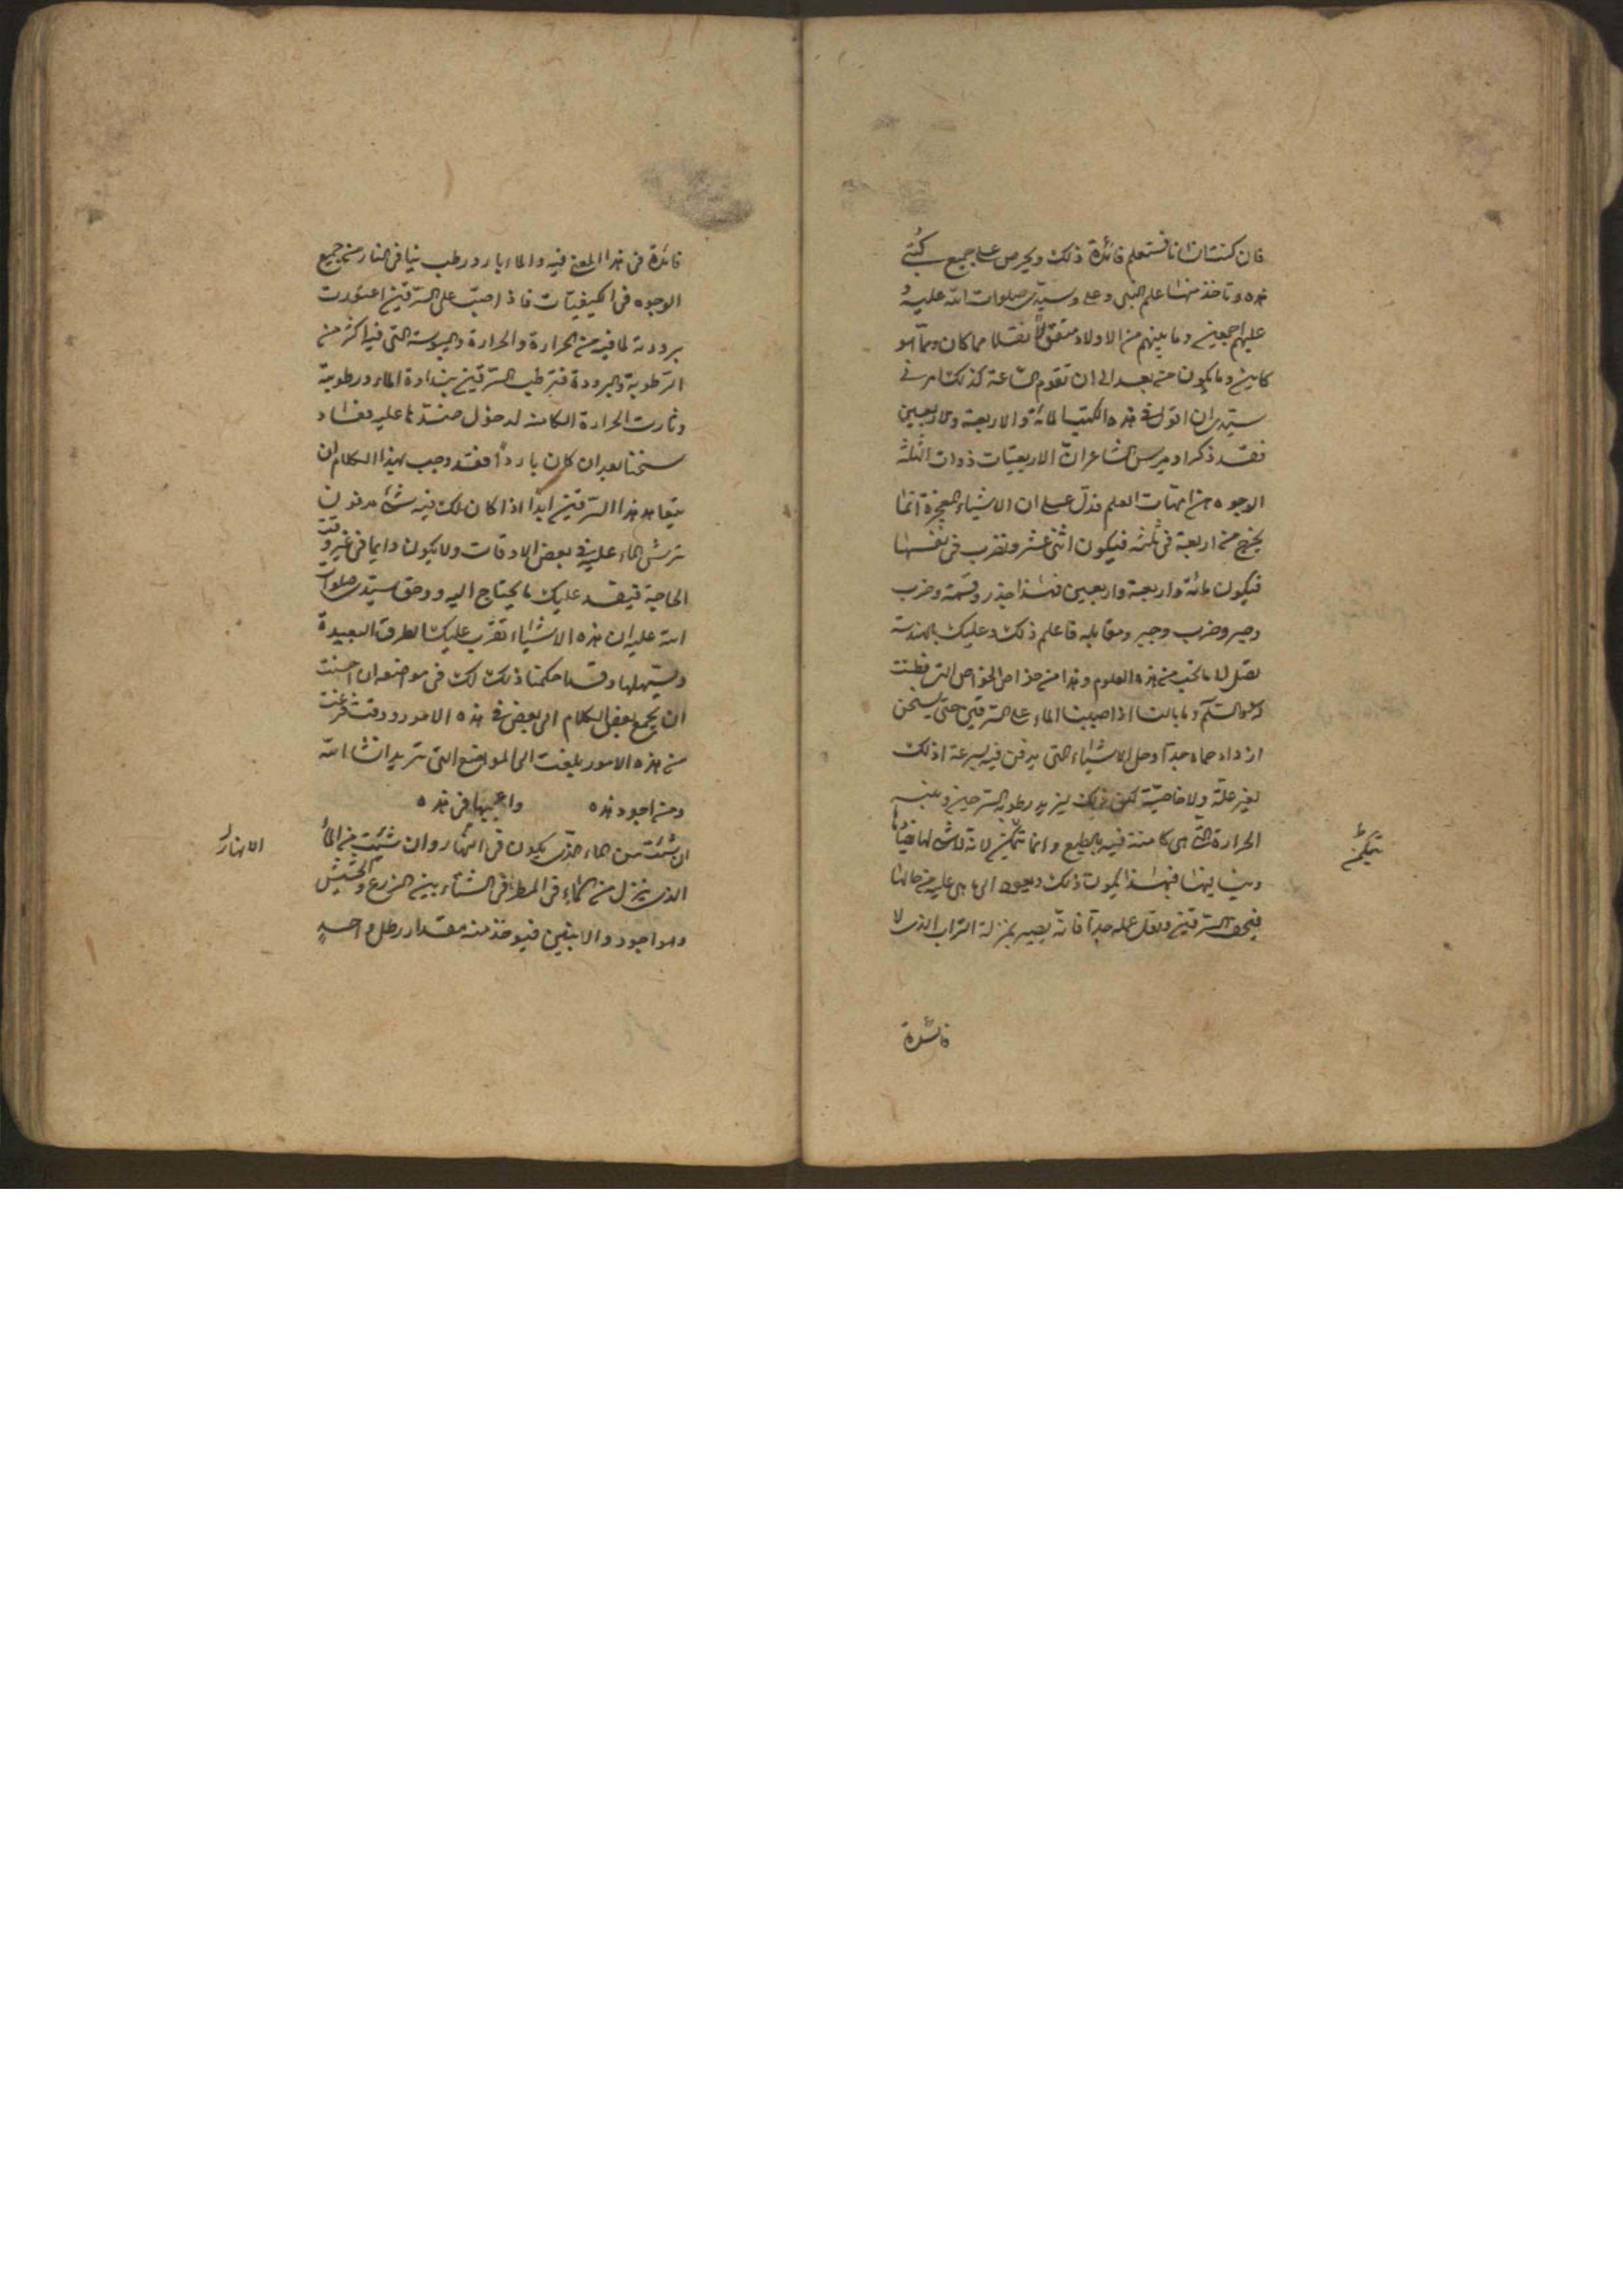 فان كنت انسانا فستعلم فائدة ذلك وتحرص على جميع كتبى
هذه وتاخذ منها علم النبى وعلى وسيدى صلوات الله عليه و
عليهم اجمعين وما بينهم من الاولاد منقولا نقلا مما كان ومما هو
كاين وما يكون من بعد الى ان تقوم الساعة كذلك امرنى
سيدى ان اقول فى هذه الكتب المائة والاربعة والاربعين
فقد ذكر اوميرس الشاعر ان الاربعيات ذوات الثلثة
الوجوه من امهات العلم فدل على ان الاشياء المعجزة انما
يخرج من اربعة فى ثلثه فيكون اثنى عشر وتضرب فى نفسها
فيكون مائة واربعة واربعين فهذا جذر وقسمة وضرب
وجبر وضرب وجبر ومقابله فاعلم ذلك وعليك بالهندسة
تصل الى ما تحب من هذه العلوم وهذا من خواص الخواص التى فطنت
وما بالنا اذا صببنا الماء على السرقين حتى يسخن
ازداد حماه جدا وحل الاشياء التى يدفن فيه بسرعة اذلك
لغير علة ولا خاصية لكن ذلك ليزيد رطوبة السرجين وينبه
الحرارة التى هى كامنة فيه بالطبع وانما تتكمن لانه لا شىء لها يضادها
وينافيها فبهذا يكون ذلك ويعود الى ما هى عليه من حالها
فيجف السرقين ويقل عمله جدا فانه يصير بمنزلة التراب الذى لا
تتكمن
فائدة
فائدة فى هذا المعنى فيه والماء بارد رطب ينافى النار من جميع
الوجوه فى الكيفيات فاذا صب على السرقين اعتدلت
برودته لما فيه من الحرارة والحرارة واليبوسة التى فيه اكثر من
الرطوبة والبرودة فترطب السرقين بنداوة الماء ورطوبته
وثارت الحرارة الكامنه لدخول ضدها عليه فعاد
سخنا بعد ان كان باردا فقد وجب بهذا الكلام ان
يتعاهد هذا السرقين ابدا اذا كان لك فيه شىء مدفون
ترش الماء عليه فى بعض الاوقات ولا يكون دايما فى غير وقت
الحاجة فيفسد عليك ما يحتاج اليه ووحق سيدى صلوات
الله عليه ان هذه الاشياء تقرب عليك الطرق البعيدة
وتسهلها وقد احكمنا ذلك لك فى مواضعه ان احسنت
ان تجمع بعض الكلام الى بعض فى هذه الامور ووقت فرغت
من هذه الامور بلغت الى المواضع التى تريد انشا الله
ومن اجود هذه واعجبها فى هذه
ان شئت من الماء الذى يكون فى النهار وان شئت من الماء
الذى ينزل من السماء فى المطر فى الشتاء بين الزرع والحشيش
وهو اجود والابنين فيوخذ منه مقدار رطل واحد
الانهار